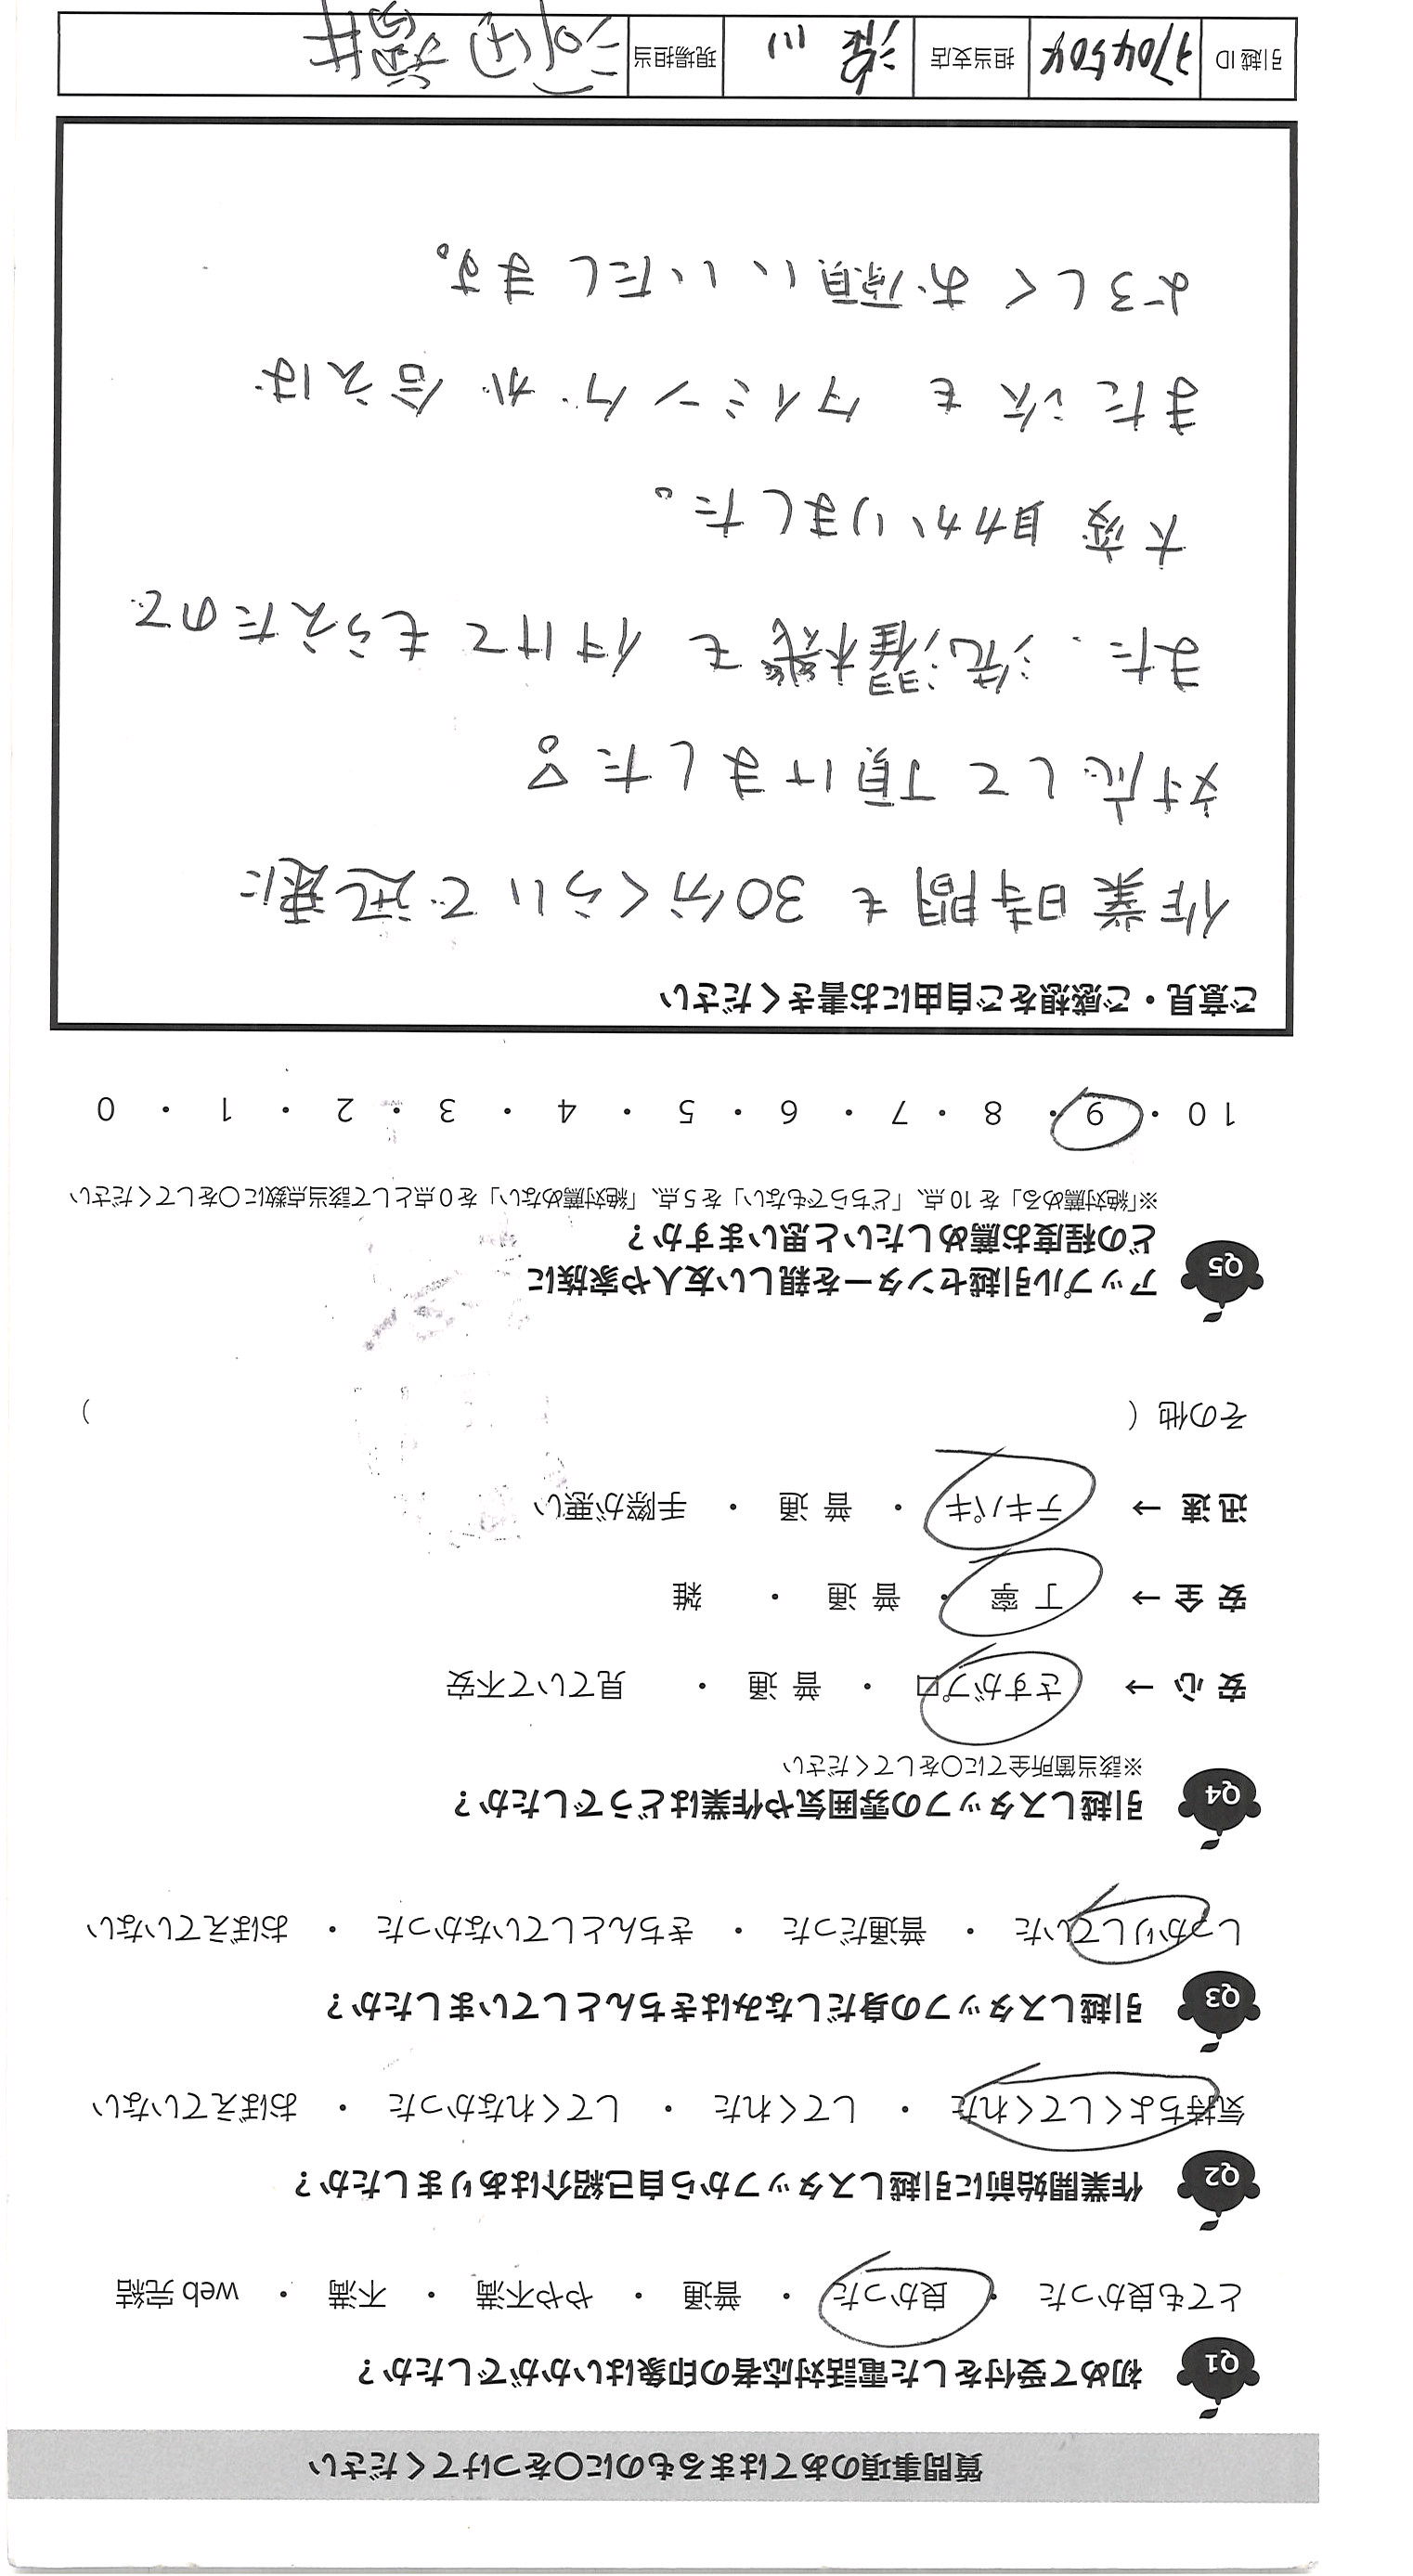 質問事項のあてはまるものに〇をつけてください
Q1 初めて受付をした電話対応者の印象はいかがでしたか？
とても良かった ・ 良かった ・ 普通 ・ やや不満 ・ 不満 ・ web 完結
Q2 作業開始前に引越しスタッフから自己紹介はありましたか？
気持ちよくしてくれた ・ してくれた ・ してくれなかった ・ おぼえていない
Q3 引越しスタッフの身だしなみはきちんとしていましたか？
しっかりしていた ・ 普通だった ・ きちんとしていなかった ・ おぼえていない
Q4 引越しスタッフの雰囲気や作業はどうでしたか？
※該当箇所全てに〇をしてください
安 心 → さすがプロ ・ 普 通 ・ 見ていて不安
安 全 → 丁 寧 ・ 普 通 ・ 雑
迅 速 → テキパキ ・ 普 通 ・ 手際が悪い
その他（ ）
Q5 アップル引越センターを親しい友人や家族に
どの程度お薦めしたいと思いますか？
※「絶対薦める」を 10 点、「どちらでもない」を 5 点、「絶対薦めない」を 0 点として該当点数に〇をしてください
10 ・ 9 ・ 8 ・ 7 ・ 6 ・ 5 ・ 4 ・ 3 ・ 2 ・ 1 ・ 0
ご意見・ご感想をご自由にお書きください
作業時間も 30分くらいで迅速に
対応して頂けました!!
また、洗濯機も 付けてもらえたので
大変助かりました。
また次も タイミングが 合えば
よろしくお願いいたします。
引越 ID 2704504 担当支店 滝川 現場担当 河田 福井